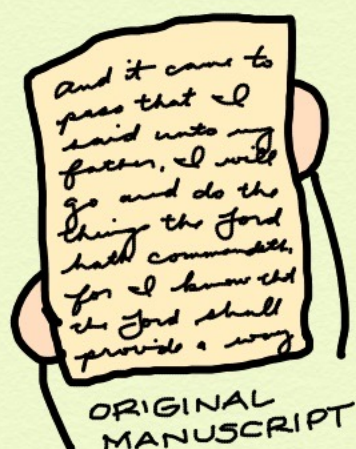 and it came to
pass that I
said unto my
father, I will
go and do the
things the Lord
hath commandeth,
for I know that
the Lord shall
provide a way
ORIGINAL
MANUSCRIPT